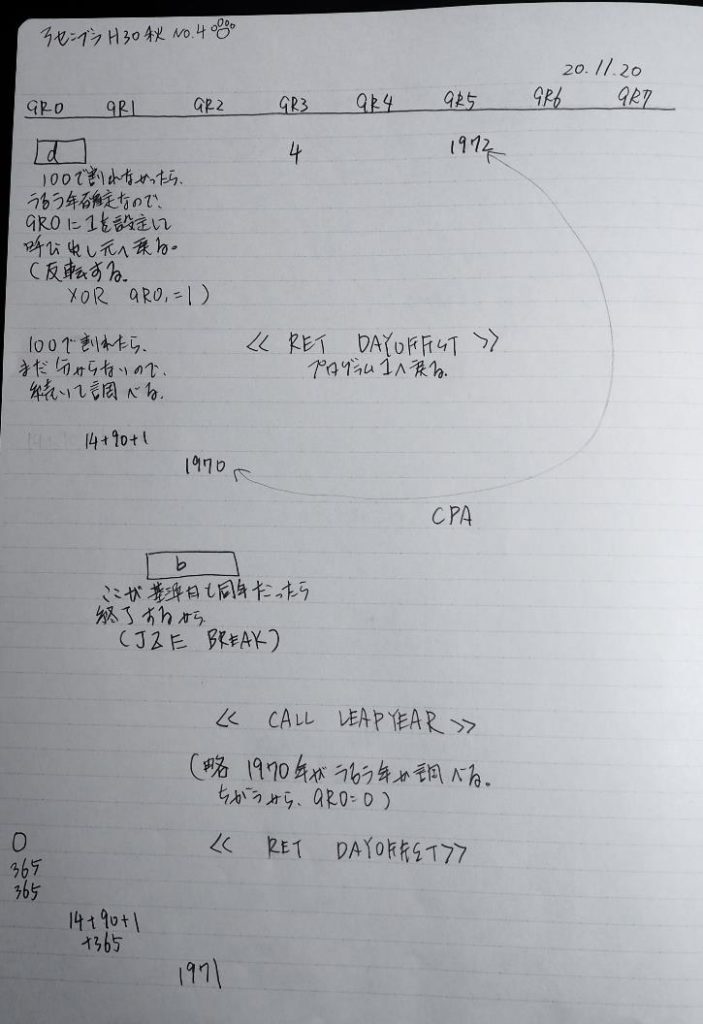 アセンブラ H30秋 NO.4
20.11.20
GR0 GR1 GR2 GR3 GR4 GR5 GR6 GR7
d 4 1972
100で割れなかったら、
うるう年確定なので、
GR0に1を設定して
呼び出し元へ戻る。
(反転する。
XOR GR0,=1)
100で割れたら、
まだ分からないので、
続いて調べる。
<< RET DAYOFFSET >>
プログラム1へ戻る。
14+90+1
1970
CPA
b
ここが基準日と同年だったら
終了するから
(JZE BREAK)
<< CALL LEAPYEAR >>
(略 1970年がうるう年か調べる。
ちがうから、GR0=0)
<< RET DAYOFFSET>>
0
365
365
14+90+1
+365
1971